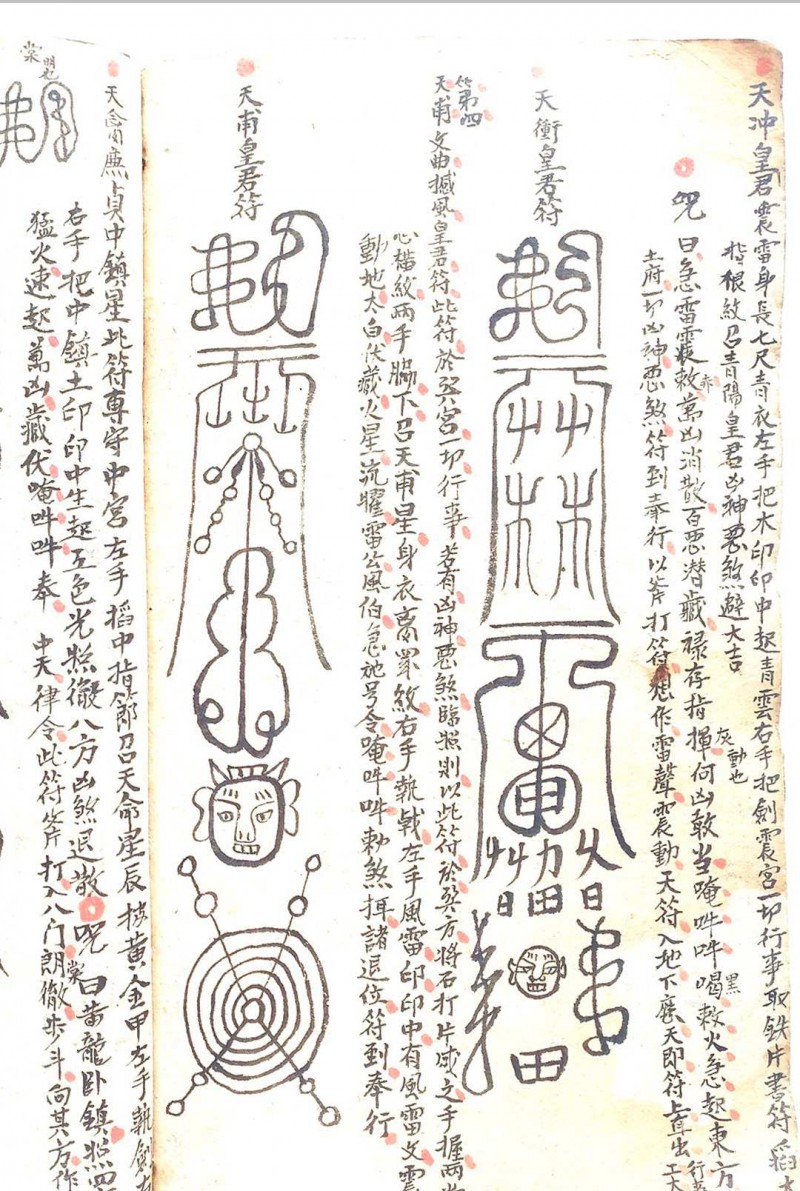 天冲皇君震雷身長七尺青衣左手把木印印中起青雲右手把劍震宮一切行事取鉄片書符
指根紋召青陽皇君凶神惡煞避大吉
咒曰急雷震敕萬凶消散百惡潛藏祿存指揮何凶敢当唵吽吽喝敕火急起東方
赤
灰動也
黑
土府一切凶神惡煞符到奉行以斧打符想作雷聲震動天符入地下應天即符上直出
天衝皇君符
第四
天甫文曲撼風皇君符此符於巽宮一切行事若有凶神惡煞臨照則以此符於巽方將石打片滅之手握兩
心橫紋兩手腋下召天甫星身衣高罩紋右手執戟左手風雷印印中有風雷文
動地太白伏藏火星流曜雷公風伯急施号令唵吽吽勅煞揖諸退位符到奉行
天甫皇君符
天禽廉貞中鎮星此符專守中宮左手搯中指節召天禽星辰披黃金甲左手執劍
右手把中鎮土印印中生起五色光照徹八方凶煞退散咒曰黃龍卧鎮照四
猛火速起萬凶藏伏唵吽吽奉中天律令此符斧打入八门朗徹步斗向其方作
棠
明也